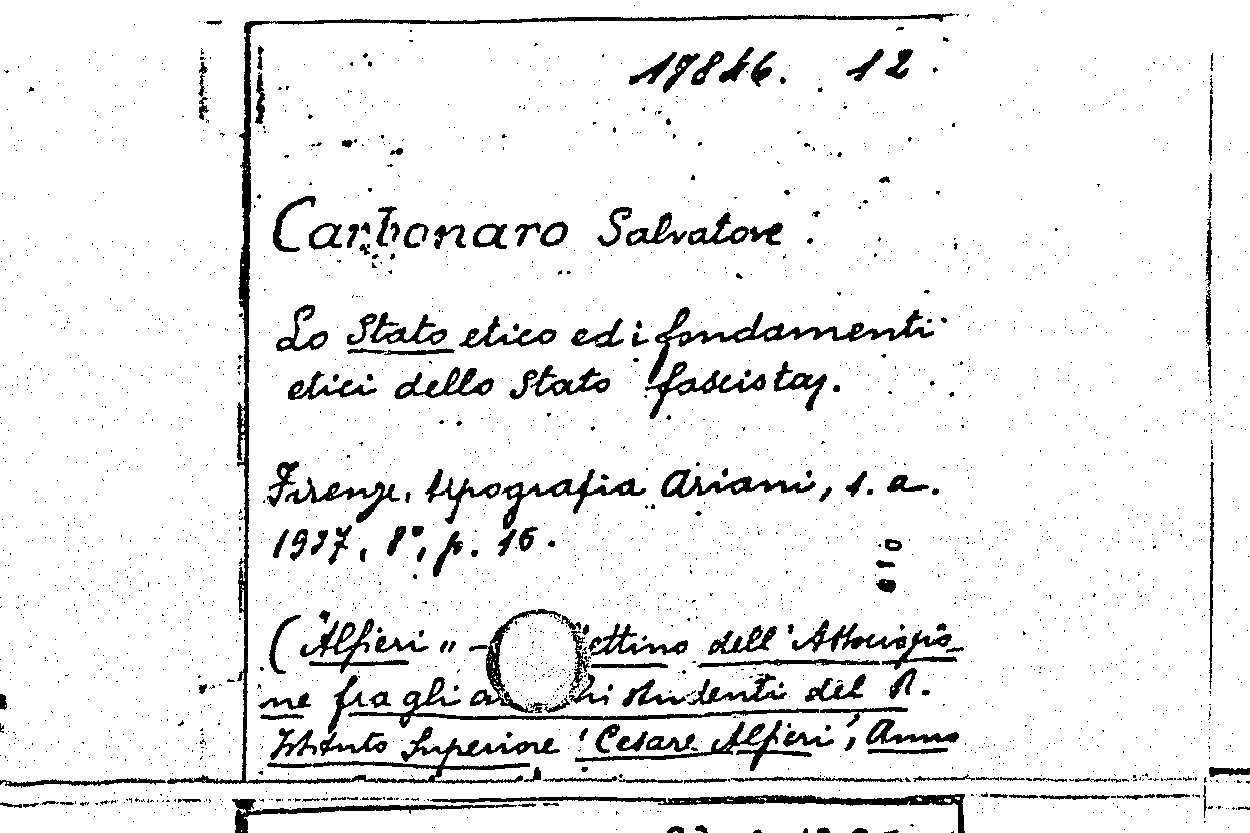 17846. 12.
Carbonaro Salvatore.
Lo Stato etico ed i fondamenti
etici dello Stato fascista.
Firenze, tipografia Ariani, s. a.
1927, 8°, p. 16.
010
("Alfieri" - ettino dell'Associazio-
ne fra gli a hi studenti del R.
Istituto Superiore "Cesare Alfieri", Anno